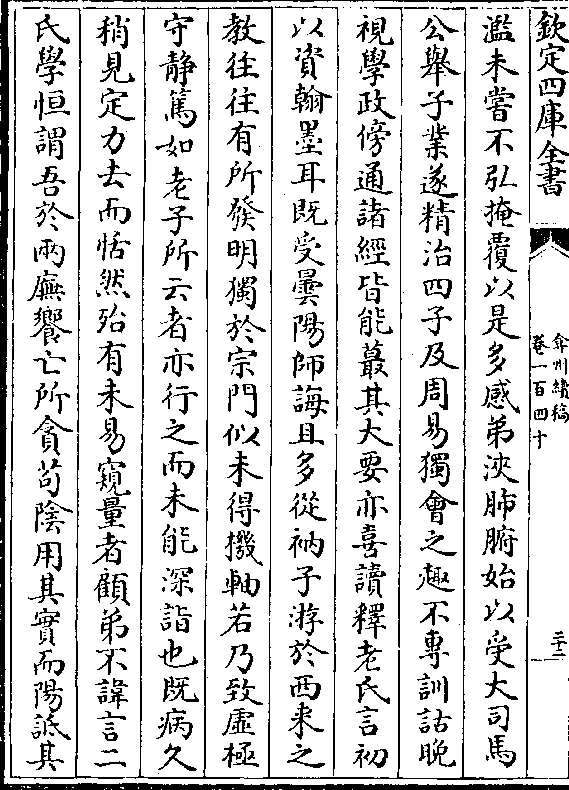 欽定四庫全書
弇州續稿
卷一百四十
三十二
濫未嘗不引掩覆以是多感弟浹肺腑始以受大司馬
公舉子業遂精治四子及周易獨會之趣不專訓詁晚
視學政傍通諸經皆能蕞其大要亦喜讀釋老氏言初
以資翰墨耳既受曇陽師誨且多從衲子游於西來之
教往往有所發明獨於宗門似未得機軸若乃致虛極
守靜篤如老子所云者亦行之而未能深詣也既病久
稍見定力去而恬然殆有未易窺量者顧弟不諱言二
氏學恒謂吾於兩廡饗亡所貪苟陰用其實而陽詆其